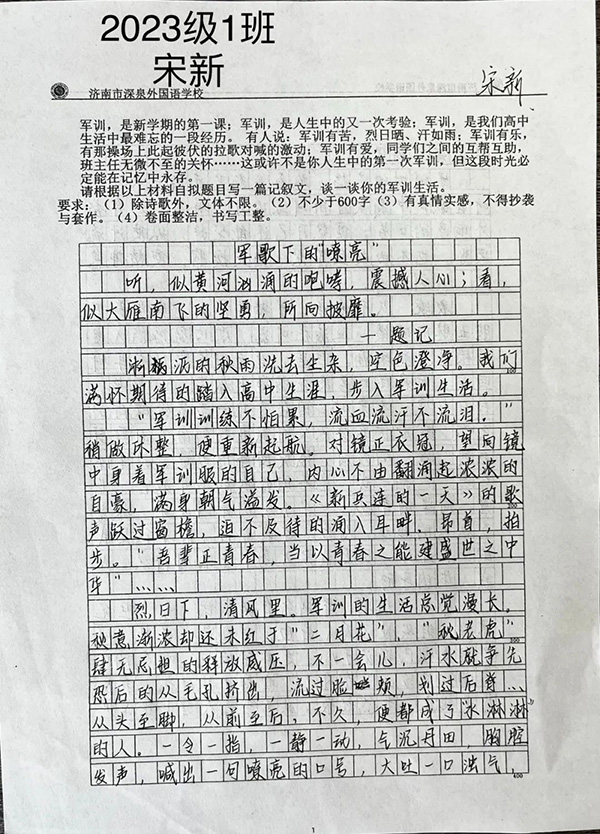 2023级1班
宋新
济南市深泉外国语学校
宋新
军训，是新学期的第一课；军训，是人生中的又一次考验；军训，是我们高中
生活中最难忘的一段经历。 有人说：军训有苦，烈日晒、汗如雨；军训有乐，
有那操场上此起彼伏的拉歌对喊的激动；军训有爱，同学们之间的互帮互助，
班主任无微不至的关怀……这或许不是你人生中的第一次军训，但这段时光必
定能在记忆中永存。
请根据以上材料自拟题目写一篇记叙文，谈一谈你的军训生活。
要求：（1）除诗歌外，文体不限。（2）不少于600字（3）有真情实感，不得抄袭
与套作。（4）卷面整洁，书写工整。
军歌下的“嘹亮”
听，似黄河汹涌的咆哮，震撼人心；看，
似大雁南飞的坚勇，所向披靡。
—题记
淅沥沥的秋雨洗去尘杂，空色澄净。我们
100
满怀期待的踏入高中生涯，步入军训生活。
“军训训练不怕累，流血流汗不流泪。”
稍做休整，便重新起航。对镜正衣冠，望向镜
中身着军训服的自己，内心不由翻涌起浓浓的
自豪，满身朝气溢发。《新兵连的一天》的歌
200
声跃过窗檐，迫不及待的涌入耳畔，昂首，拍
步。“吾辈正青春，当以青春之能建盛世之中
华”……
烈日下，清风里。军训的生活总觉漫长。
秋意渐浓却还未红于“二月花”，“秋老虎”
300
肆无忌担的释放威压，不一会儿，汗水就争先
恐后的从毛孔挤出，流过脸颊，划过后脊…
从头至脚，从前至后，不久，便都成了水淋淋
的人。一令一指，一静一动，气沉丹田，胸腔
发声，喊出一句嘹亮的口号，大吐一口浊气，
400
1